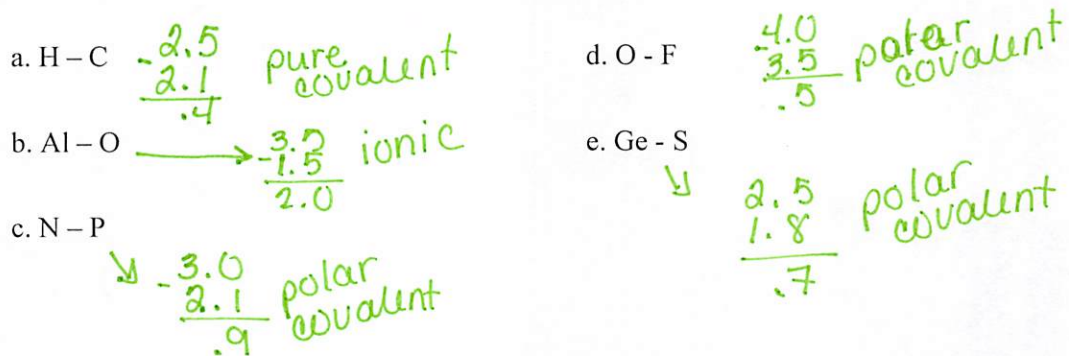 a. H – C
-2.5
2.1
.4
pure
covalent
b. Al – O
-1.5
2.0
ionic
c. N – P
-3.0
2.1
.9
polar
covalent
d. O - F
-4.0
3.5
.5
polar
covalent
e. Ge - S
2.5
1.8
.7
polar
covalent